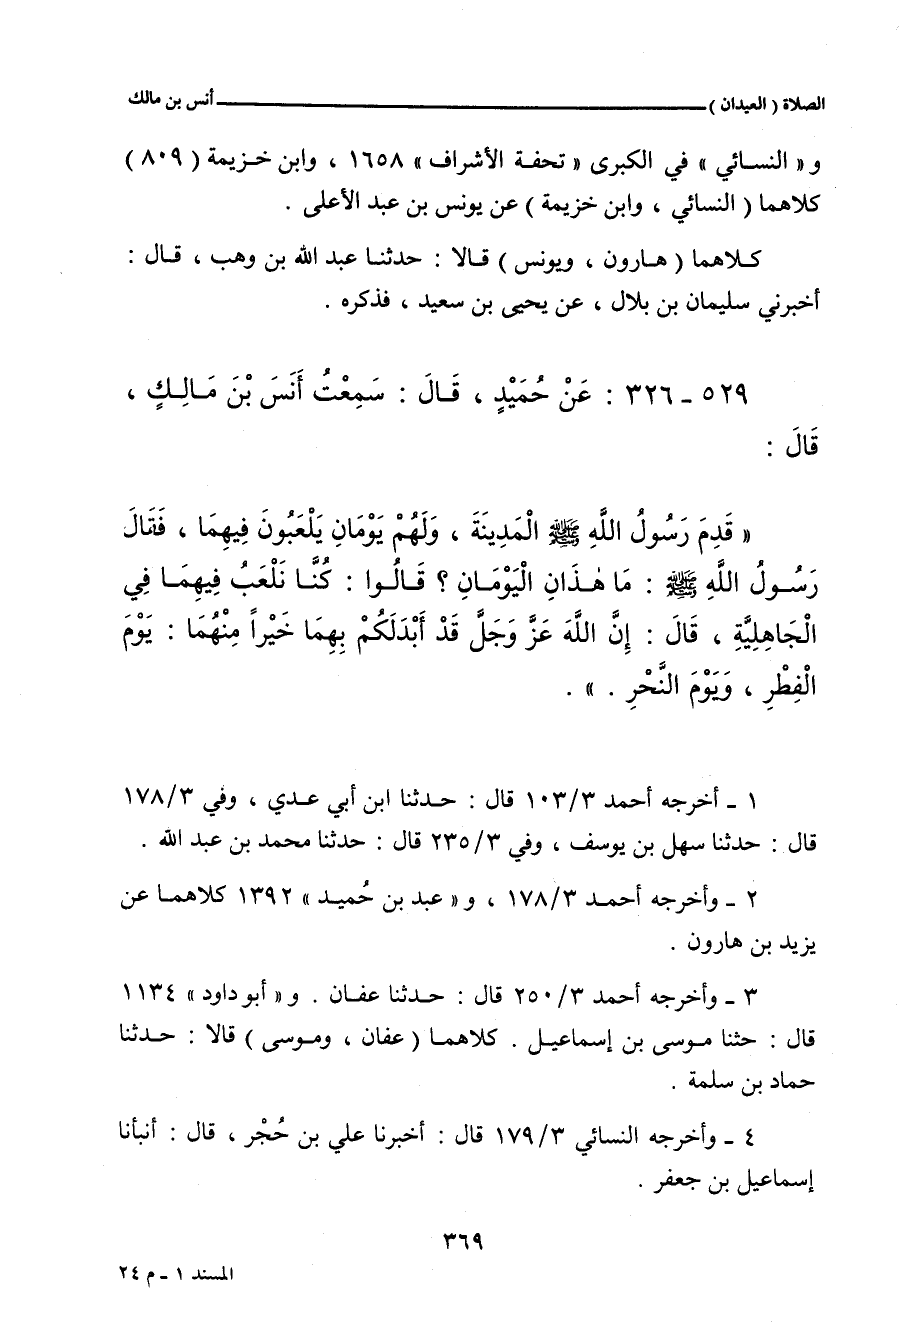 الصلاة ( العيدان ) ــــــــــــــــــــ أنس بن مالك
و « النسائي » في الكبرى « تحفة الأشراف » ١٦٥٨ ، وابن خزيمة ( ٨٠٩ )
كلاهما ( النسائي ، وابن خزيمة ) عن يونس بن عبد الأعلى .
كلاهما ( هارون ، ويونس ) قالا : حدثنا عبد الله بن وهب ، قال :
أخبرني سليمان بن بلال ، عن يحيى بن سعيد ، فذكره .
٥٢٩ ـ ٣٢٦ : عَنْ حُمَيْدٍ ، قَالَ : سَمِعْتُ أَنَسَ بْنَ مَالِكٍ ،
قَالَ :
« قَدِمَ رَسُولُ اللَّهِ ﷺ الْمَدِينَةَ ، وَلَهُمْ يَوْمَانِ يَلْعَبُونَ فِيهِمَا ، فَقَالَ
رَسُولُ اللَّهِ ﷺ : مَا هٰذَانِ الْيَوْمَانِ ؟ قَالُوا : كُنَّا نَلْعَبُ فِيهِمَا فِي
الْجَاهِلِيَّةِ ، قَالَ : إِنَّ اللَّهَ عَزَّ وَجَلَّ قَدْ أَبْدَلَكُمْ بِهِمَا خَيْراً مِنْهُمَا : يَوْمَ
الْفِطْرِ ، وَيَوْمَ النَّحْرِ . » .
١ ـ أخرجه أحمد ١٠٣/٣ قال : حدثنا ابن أبي عدي ، وفي ١٧٨/٣
قال : حدثنا سهل بن يوسف ، وفي ٢٣٥/٣ قال : حدثنا محمد بن عبد الله .
٢ ـ وأخرجه أحمد ١٧٨/٣ ، و « عبد بن حُميد » ١٣٩٢ كلاهما عن
يزيد بن هارون .
٣ ـ وأخرجه أحمد ٢٥٠/٣ قال : حدثنا عفان . و « أبو داود » ١١٣٤
قال : حثنا موسى بن إسماعيل . كلاهما ( عفان ، وموسى ) قالا : حدثنا
حماد بن سلمة .
٤ ـ وأخرجه النسائي ١٧٩/٣ قال : أخبرنا علي بن حُجْر ، قال : أنبأنا
إسماعيل بن جعفر .
٣٦٩
المسند ١ ـ م ٢٤